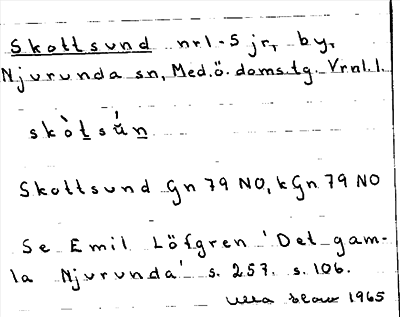 Skottsund nr 1-5 jr, by,
Njurunda sn, Med.ö. domstg. Vrnl. l.
skò̀t sún
Skottsund Gn 79 NO, kGn 79 NO
Se Emil Löfgren 'Det gam-
la Njurunda' s. 257. s. 106.
1965